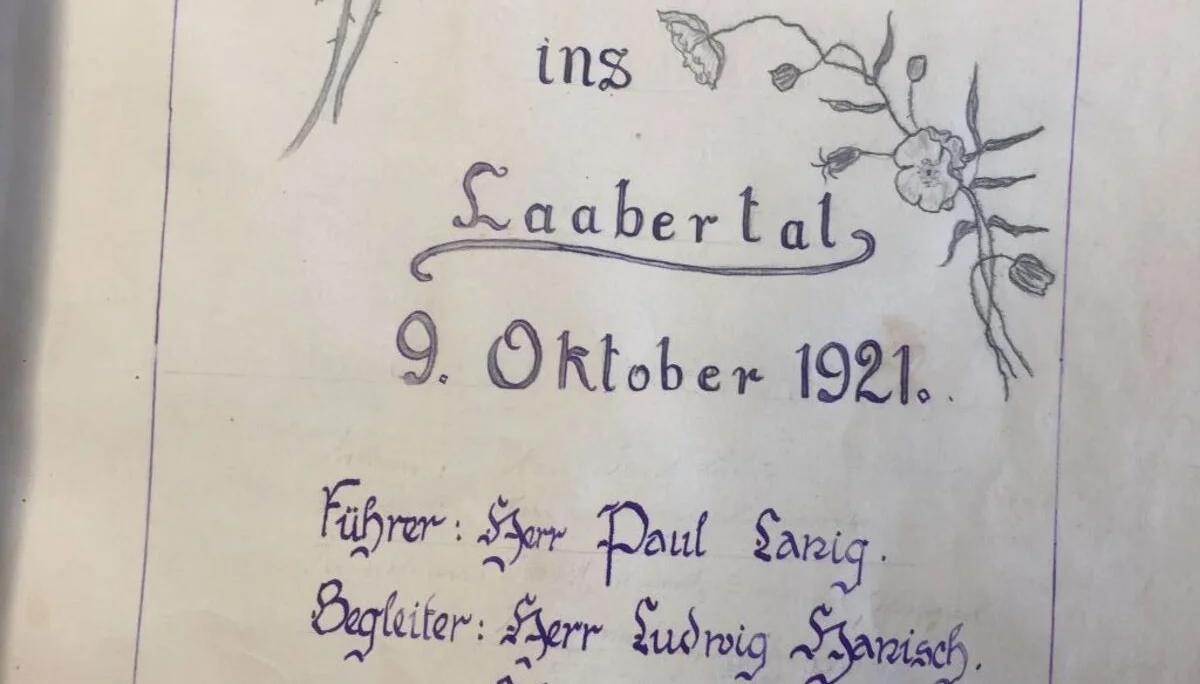 ins
Laabertal
9. Oktober 1921.
Führer: Herr Paul Lanig.
Begleiter: Herr Ludwig Hanisch.